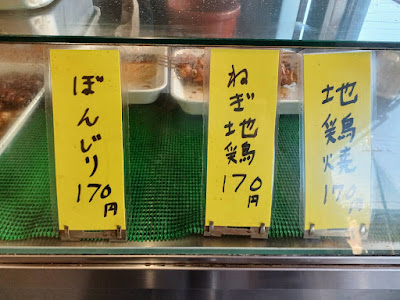 ぼんじり
170円
ねぎ地鶏
170円
地鶏焼
170円